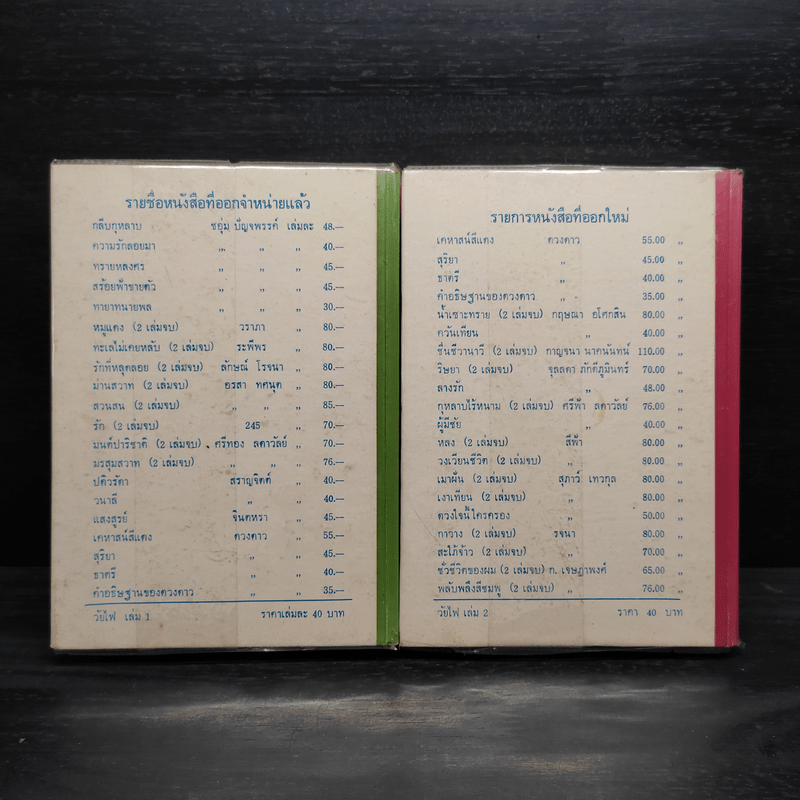 รายชื่อหนังสือที่ออกจำหน่ายแล้ว
กลีบกุหลาบ ชอุ่ม ปัญจพรรค์ เล่มละ 48.—
ความรักลอยมา ,, ,, ,, 40.—
ทรายหลงศร ,, ,, ,, 45.—
สร้อยฟ้าขายตัว ,, ,, ,, 45.—
ทายาทนายพล ,, ,, ,, 30.—
หมูแดง (2 เล่มจบ) วราภา ,, 80.—
ทะเลไม่เคยหลับ (2 เล่มจบ) ระพีพร ,, 80.—
รักที่หลุดลอย (2 เล่มจบ) ลักษณ์ โรจนา ,, 80.—
ม่านสวาท (2 เล่มจบ) อรสา ทศนุต ,, 80.—
สวนสน (2 เล่มจบ) ,, ,, ,, 85.—
รัก (2 เล่มจบ) 245 ,, 70.—
มนต์ปาริชาติ (2 เล่มจบ) ศรีทอง ลดาวัลย์ ,, 70.—
มรสุมสวาท (2 เล่มจบ) ,, ,, ,, 76.—
ปดิวรัดา สราญจิตต์ ,, 40.—
วนาลี ,, ,, 40.—
แสงสูรย์ จินตหรา ,, 45.—
เคหาสน์สีแดง ดวงดาว ,, 55.—
สุริยา ,, ,, 45.—
ธาตรี ,, ,, 40.—
คำอธิษฐานของดวงดาว ,, ,, 35.—
วัยไฟ เล่ม 1 ราคาเล่มละ 40 บาท
รายการหนังสือที่ออกใหม่
เคหาสน์สีแดง ดวงดาว 55.00 ,,
สุริยา ,, 45.00 ,,
ธาตรี ,, 40.00 ,,
คำอธิษฐานของดวงดาว ,, 35.00 ,,
น้ำเซาะทราย (2 เล่มจบ) กฤษณา อโศกสิน 80.00 ,,
ควันเทียน ,, 40.00 ,,
ชื่นชีวานาวี (2 เล่มจบ) กาญจนา นาคนันทน์ 110.00 ,,
ริษยา (2 เล่มจบ) จุลลดา ภักดีภูมินทร์ 70.00 ,,
ลางรัก ,, 48.00 ,,
กุหลาบไร้หนาม (2 เล่มจบ) ศรีฟ้า ลดาวัลย์ 76.00 ,,
ผู้มีชัย ,, 40.00 ,,
หลง (2 เล่มจบ) สีฟ้า 80.00 ,,
วงเวียนชีวิต (2 เล่มจบ) ,, 80.00 ,,
เมาฝัน (2 เล่มจบ) สุภาว์ เทวกุล 80.00 ,,
เงาเทียน (2 เล่มจบ) ,, 80.00 ,,
ดวงใจนี้ใครครอง ,, 50.00 ,,
กาวาง (2 เล่มจบ) รจนา 80.00 ,,
สะใภ้จ้าว (2 เล่มจบ) ,, 70.00 ,,
ชั่วชีวิตของผม (2 เล่มจบ) ก. เจษฎาพงศ์ 65.00 ,,
พลับพลึงสีชมพู (2 เล่มจบ) ,, 76.00 ,,
วัยไฟ เล่ม 2 ราคา 40 บาท